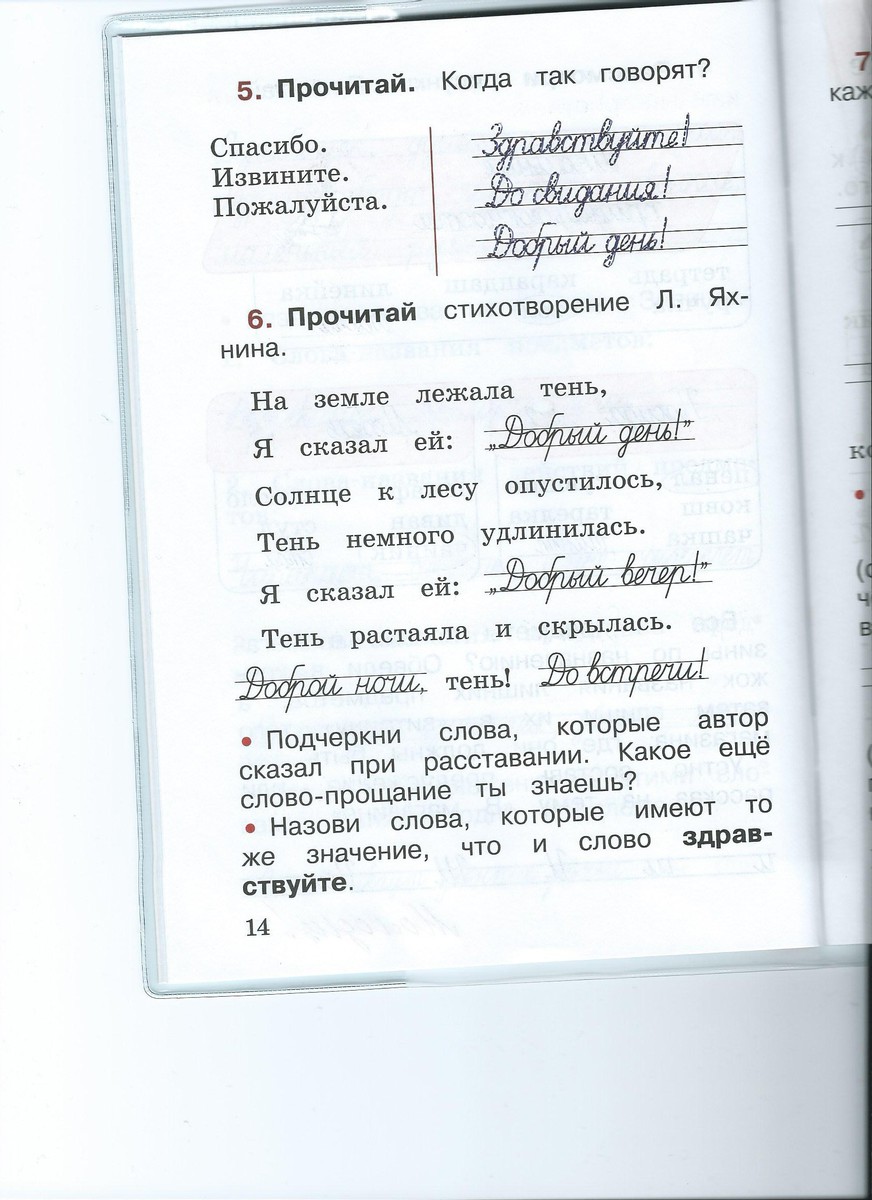 5. Прочитай. Когда так говорят?
Спасибо.
Извините.
Пожалуйста.
Здравствуйте!
До свидания!
Добрый день!
6. Прочитай стихотворение Л. Ях-
нина.
На земле лежала тень,
Я сказал ей: „Добрый день!”
Солнце к лесу опустилось,
Тень немного удлинилась.
Я сказал ей: „Добрый вечер!”
Тень растаяла и скрылась.
Доброй ночи, тень! До встречи!
• Подчеркни слова, которые автор
сказал при расставании. Какое ещё
слово-прощание ты знаешь?
• Назови слова, которые имеют то
же значение, что и слово здрав-
ствуйте.
14
7
каж